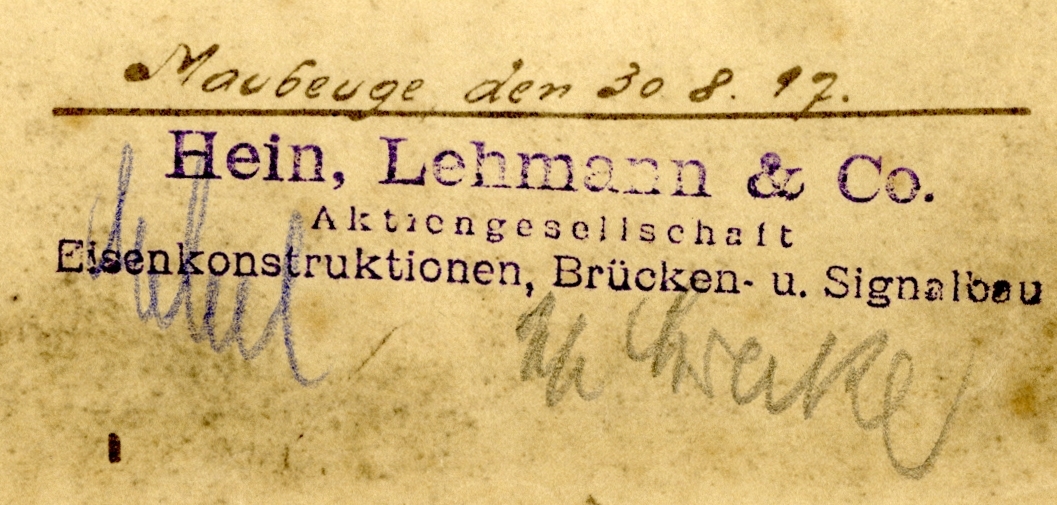 Maubeuge den 30 8. 17.
Hein, Lehmann & Co.
Aktiengesellschaft
Eisenkonstruktionen, Brücken- u. Signalbau